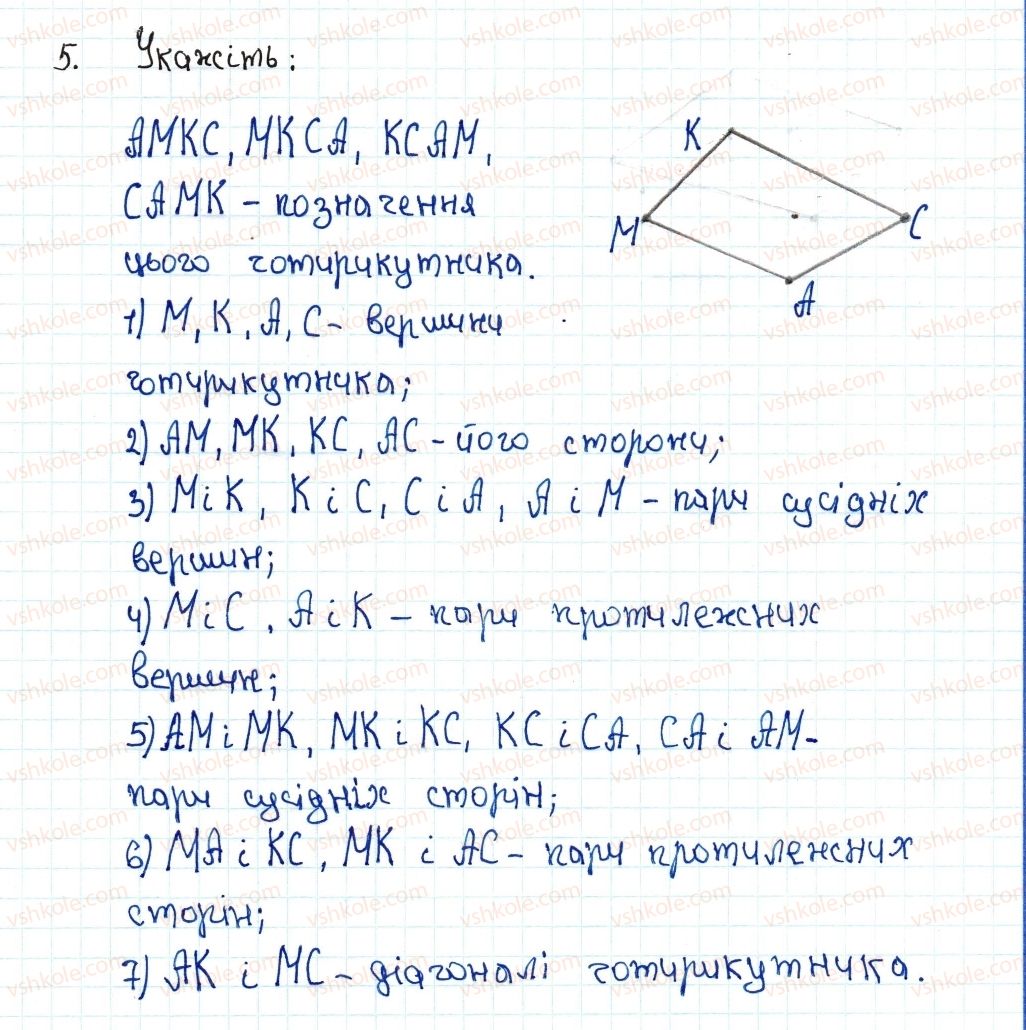 5. Укажіть:
АМКС, МКСА, КСАМ,
САМК – позначення
цього чотирикутника.
1) М, К, А, С – вершини
чотирикутника;
2) АМ, МК, КС, АС – його сторони;
3) М і К, К і С, С і А, А і М – пари сусідніх
вершин;
4) М і С, А і К – пари протилежних
вершин;
5) АМ і МК, МК і КС, КС і СА, СА і АМ –
пари сусідніх сторін;
6) МА і КС, МК і АС – пари протилежних
сторін;
7) АК і МС – діагоналі чотирикутника.
К
М
С
А
vshkole.com